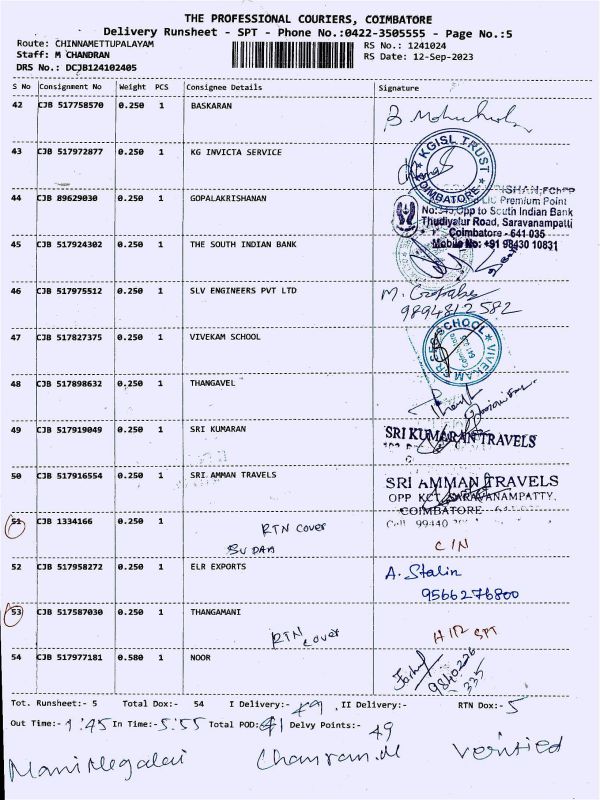 THE PROFESSIONAL COURIERS, COIMBATORE
Delivery Runsheet - SPT - Phone No.:0422-3505555 - Page No.:5
Route: CHINNAMETTUPALAYAM RS No.: 1241024
Staff: M CHANDRAN RS Date: 12-Sep-2023
DRS No.: DCJB124102405
S No Consignment No Weight PCS Consignee Details Signature
42 CJB 517758570 0.250 1 BASKARAN
43 CJB 517972877 0.250 1 KG INVICTA SERVICE
KGISL TRUST
COIMBATORE
44 CJB 89629030 0.250 1 GOPALAKRISHANAN
Premium Point
Opp to South Indian Bank
Thudiyalur Road, Saravanampatti
Coimbatore - 641 035
45 CJB 517924302 0.250 1 THE SOUTH INDIAN BANK
Mobile No: +91 98430 10831
46 CJB 517975512 0.250 1 SLV ENGINEERS PVT LTD
9894812582
47 CJB 517827375 0.250 1 VIVEKAM SCHOOL
VIVEKAM SR SEC SCHOOL
48 CJB 517898632 0.250 1 THANGAVEL
49 CJB 517919049 0.250 1 SRI KUMARAN
SRI KUMARAN TRAVELS
50 CJB 517916554 0.250 1 SRI AMMAN TRAVELS
SRI AMMAN TRAVELS
OPP KCT, SARAVANAMPATTY,
COIMBATORE
51 CJB 1334166 0.250 1
RTN cover
C/N
52 CJB 517958272 0.250 1 ELR EXPORTS
A. Stalin
9566276800
53 CJB 517587030 0.250 1 THANGAMANI
RTN cover
SPT
54 CJB 517977181 0.580 1 NOOR
9840226
335
Tot. Runsheet:- 5 Total Dox:- 54 I Delivery:- 49 II Delivery:- RTN Dox:- 5
Out Time:- 1:45 In Time:- 5:55 Total POD: Delvy Points:- 49
Verified